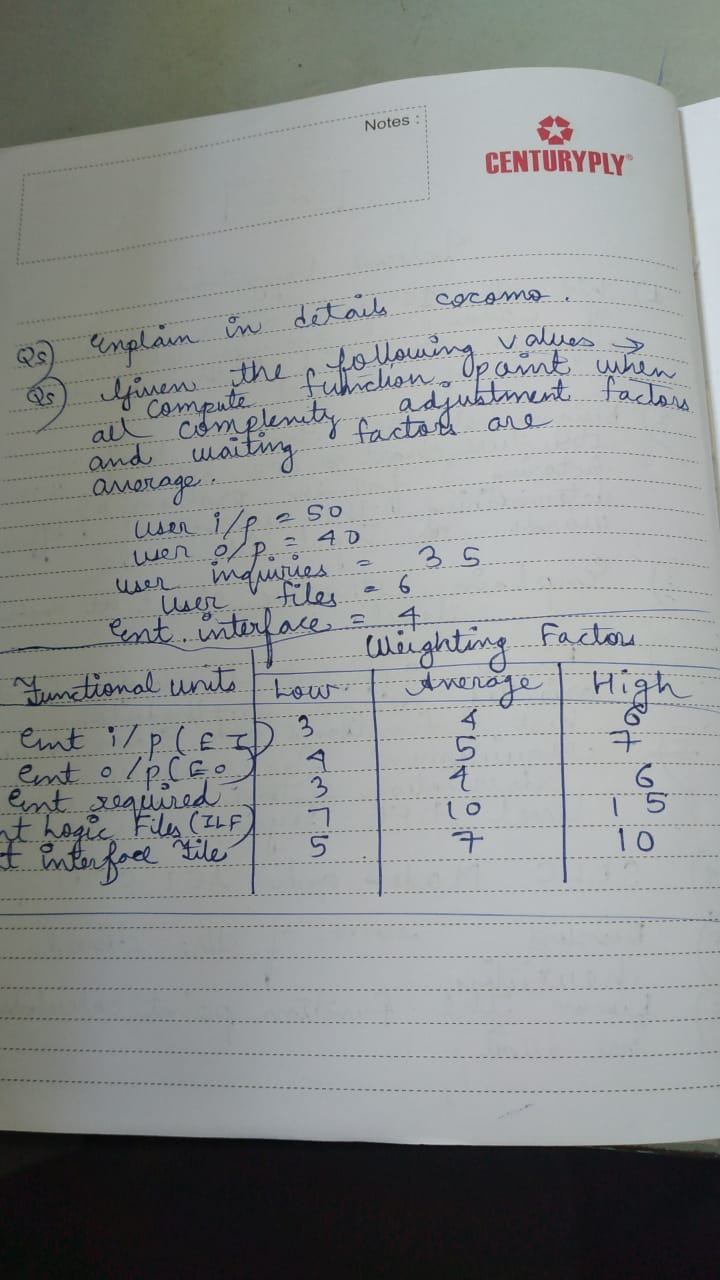 Notes :
CENTURYPLY
Qs) Explain in details cocomo.
Qs) Given the following values →
compute function point when
all complexity adjustment factors
and waiting factors are
average.
user i/p = 50
user o/p = 40
user inquiries = 35
user files = 6
Ent. interface = 4
Weighting Factors
Functional units Low Average High
ent i/p (EI) 3 4 6
ent o/p (EO) 4 5 7
ent required 3 4 6
nt Logic Files (ILF) 7 10 15
t interface File 5 7 10